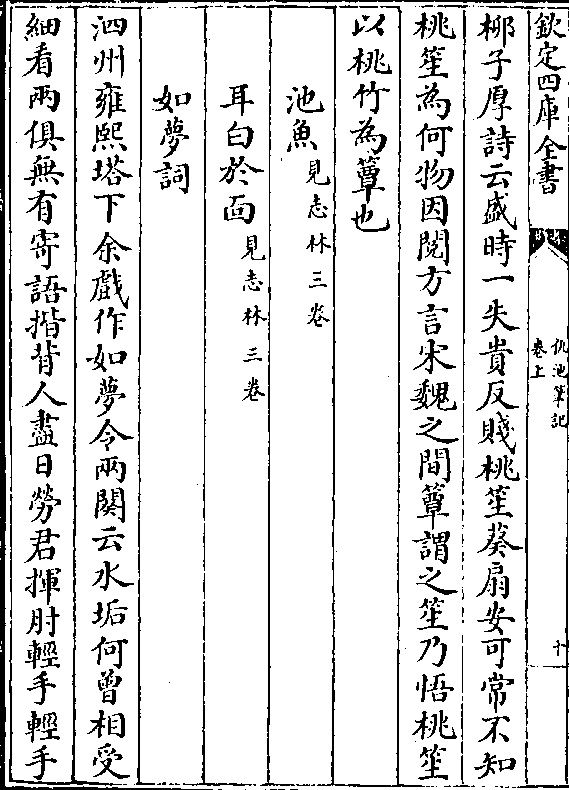 欽定四庫全書
仇池筆記
卷上
十
柳子厚詩云盛時一失貴反賤桃笙葵扇安可常不知
桃笙為何物因閱方言宋魏之間簟謂之笙乃悟桃笙
以桃竹為簟也
池魚見志林三卷
耳白於面見志林三卷
如夢詞
泗州雍熙塔下余戲作如夢令兩闋云水垢何曾相受
細看兩俱無有寄語揩背人盡日勞君揮肘輕手輕手